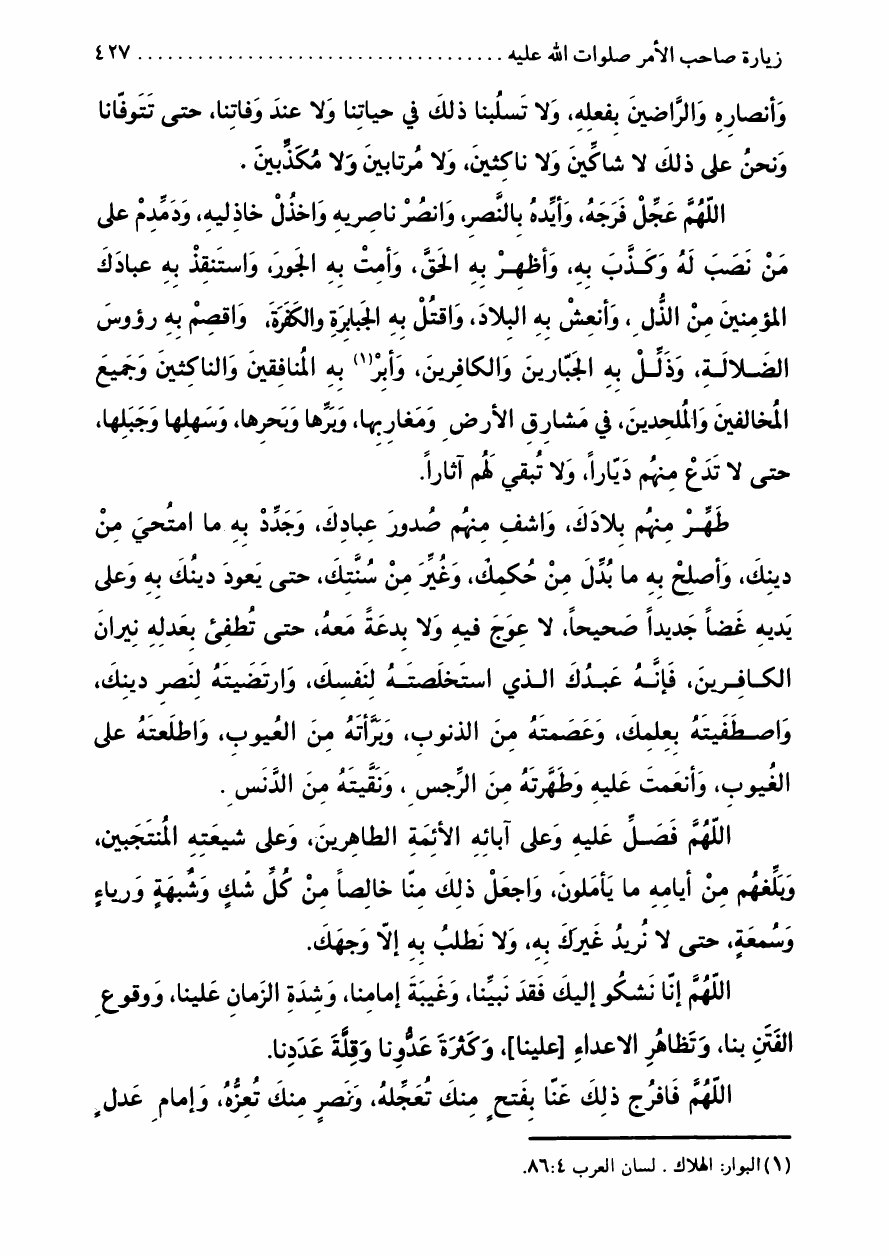 زيارة صاحب الأمر صلوات الله عليه ..................................... ٤٢٧
وَأنصارِه وَالرَّاضينَ بِفعلِه، وَلا تَسلُبنا ذلكَ في حياتِنا وَلا عندَ وَفاتِنا، حتى تَتَوفّانا
وَنحنُ على ذلكَ لا شاكّينَ وَلا ناكثينَ، وَلا مُرتابينَ وَلا مُكَذِّبينَ .
اللّهُمَّ عَجِّلْ فَرَجَهُ، وَأيِّدهُ بالنَّصرِ، وَانصُرْ ناصريه وَاخذُلْ خاذِليه، وَدَمِّدِمْ على
مَنْ نَصَبَ لَهُ وَكَـذَّبَ بِه، وَأظهِـرْ بِه الحَقَّ، وَأمِتْ بِه الجَورَ، وَاستَنقِذْ بِه عبادَكَ
المؤمنينَ مِنْ الذُّل ِ، وَأنعِشْ بِه البلادَ، وَاقتُلْ بِه الجَبابِرَةِ والكَفَرَةَ، وَاقصِمْ بِه رؤوسَ
الضَـلالَـةِ، وَذَلِّـلْ بِه الجَبّارينَ وَالكافِرينَ، وَأبِرْ(١) بِه المُنافقينَ وَالناكثينَ وَجَميعَ
المُخالفينَ وَالمُلحدينَ، في مَشارِقِ الأرض ِ وَمَغارِبِها، وَبَرِّها وَبَحرِها، وَسَهلِها وَجَبَلِها،
حتى لا تَدَعْ مِنهُم دَيّاراً، وَلا تُبقي لَهُم آثاراً.
طَهِّـرْ مِنهُم بِلادَكَ، وَاشفِ مِنهُم صُدورَ عِبادِكَ، وَجَدِّدْ بِه ما امتُحيَ مِنْ
دينِكَ، وَأصلِحْ بِه ما بُدِّلَ مِنْ حُكمِكَ، وَغُيِّرَ مِنْ سُنَّتِكَ، حتى يَعودَ دينُكَ بِه وَعلى
يَديهِ غَضاً جَديداً صَحيحاً، لا عِوَجَ فيهِ وَلا بِدعَةً مَعهُ، حتى تُطفِئ بِعَدلِهِ نيرانَ
الكـافِـرينَ، فَإنَّـهُ عَبـدُكَ الـذي استَخلَصتَـهُ لِنَفسِكَ، وَارتَضَيتَهُ لنَصرِ دينِكَ،
وَاصـطَفَيتَهُ بِعلمِكَ، وَعَصَمتَهُ مِنَ الذنوبِ، وَبَرَّأتَهُ مِنَ العُيوبِ، وَاطلَعتَهُ على
الغُيوبِ، وَأنعَمتَ عَليهِ وَطَهَّرتَهُ مِنَ الرِّجس ِ، وَنَقَّيتَهُ مِنَ الدَّنَس ِ .
اللّهُمَّ فَصَـلِّ عَليهِ وَعلى آبائِه الأئمَةِ الطاهِرينَ، وَعلى شيعَتِه المُنتَجَبينَ،
وَبَلِّغهُم مِنْ أيامِه ما يَأمَلونَ، وَاجعَلْ ذلِكَ مِنّا خالِصاً مِنْ كُلِّ شَكٍ وَشُبهَةٍ وَرياءٍ
وَسُمعَةٍ، حتى لا نُريدُ غَيرَكَ بِه، وَلا نَطلُبُ بِه إلاّ وَجهَكَ.
اللّهُمَّ إنّا نَشكُو إليكَ فَقدَ نَبيِّنا، وَغَيبَةَ إمامِنا، وَشِدَةِ الزَمانِ عَلينا، وَوقوع ِ
الفَتَنِ بنا، وَتَظاهُرِ الاعداءِ [علينا]، وَكَثرَةَ عَدُّونا وَقِلَّةَ عَدَدِنا.
اللّهُمَّ فَافرُج ذلِكَ عَنّا بِفَتح ٍ مِنكَ تُعَجِّلهُ، وَنَصرٍ مِنكَ تُعِزُّهُ، وَإمام ِ عَدل ٍ
(١) البوار: الهلاك . لسان العرب ٨٦:٤.